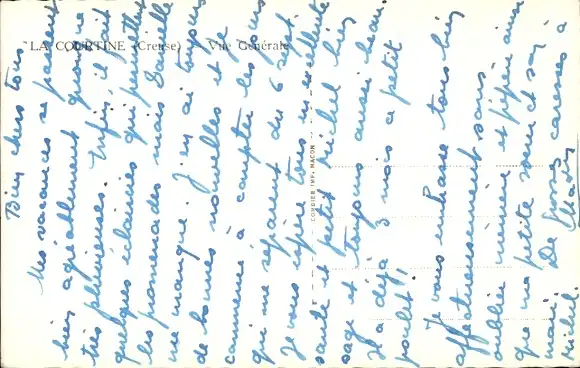 LA COURTINE (Creuse) - Vue Générale
COMBIER IMP. MACON
Bien chers tous
Mes vacances se passent
bien agréablement quoique
très pluvieuses. Enfin, il fait
quelques éclaircies qui permettent
les promenades mais Danielle
me manque. J'en ai toujours
de bonnes nouvelles et je
commence à compter les jours
qui me séparent du 6 sept.
Je vous espère tous en excellente
santé et petit Michel bien
sage et toujours aussi beau.
Il a déjà 3 mois ce petit
poulet !
Je vous embrasse tous bien
affectueusement sans
oublier mémère et pépère ainsi
que ma petite sœur et son
mari. De grosses caresses à
Michel.